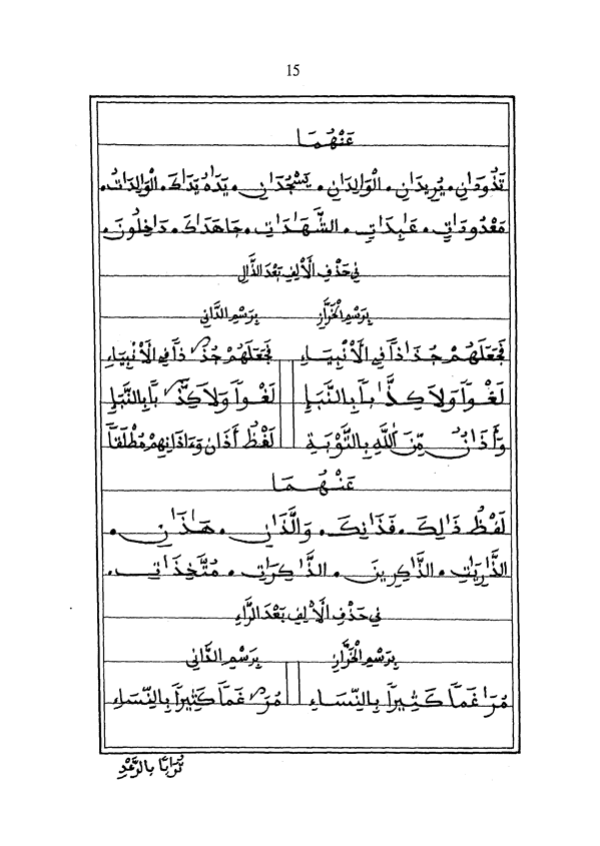 15
عَنْهُمَا
تَذُودَانِ • يُرِيدَانِ • الْوَالِدَانِ • يَسْجُدَانِ • يَدَاهُ يَدَاكَ • الْوَالِدَاتُ •
مَعْدُودَاتٍ • عَابِدَاتٍ • الشَّهَادَاتِ • جَاهَدَاكَ • دَاخِلُونَ
فِي حَذْفِ الْأَلِفِ بَعْدَ الذَّالِ
بِرَسْمِ الْخَرَّازِ بِرَسْمِ الدَّانِي
فَجَعَلَهُمْ جُذَاذاً فِي الْأَنْبِيَاءِ فَجَعَلَهُمْ جُذَاذاً فِي الْأَنْبِيَاءِ
لَغْواً وَلَا كِذَّاباً بِالنَّبَإِ لَغْواً وَلَا كِذَّاباً بِالنَّبَإِ
وَأَذَانٌ مِّنَ اللَّهِ بِالتَّوْبَةِ لَفْظُ أَذَان وَءَاذَانِهِمْ مُطْلَقاً
عَنْهُمَا
لَفْظُ ذَالِكَ • فَذَانِكَ • وَالَّذَانِ • هَاذَانِ •
الذَّارِيَاتِ • الذَّاكِرِينَ • الذَّاكِرَاتِ • مُتَّخِذَاتِ •
فِي حَذْفِ الْأَلِفِ بَعْدَ الرَّاءِ
بِرَسْمِ الْخَرَّازِ بِرَسْمِ الدَّانِي
مُرَاغَماً كَثِيراً بِالنِّسَاءِ مُرَاغَماً كَثِيراً بِالنِّسَاءِ
تُرَابًا بِالرَّعْدِ